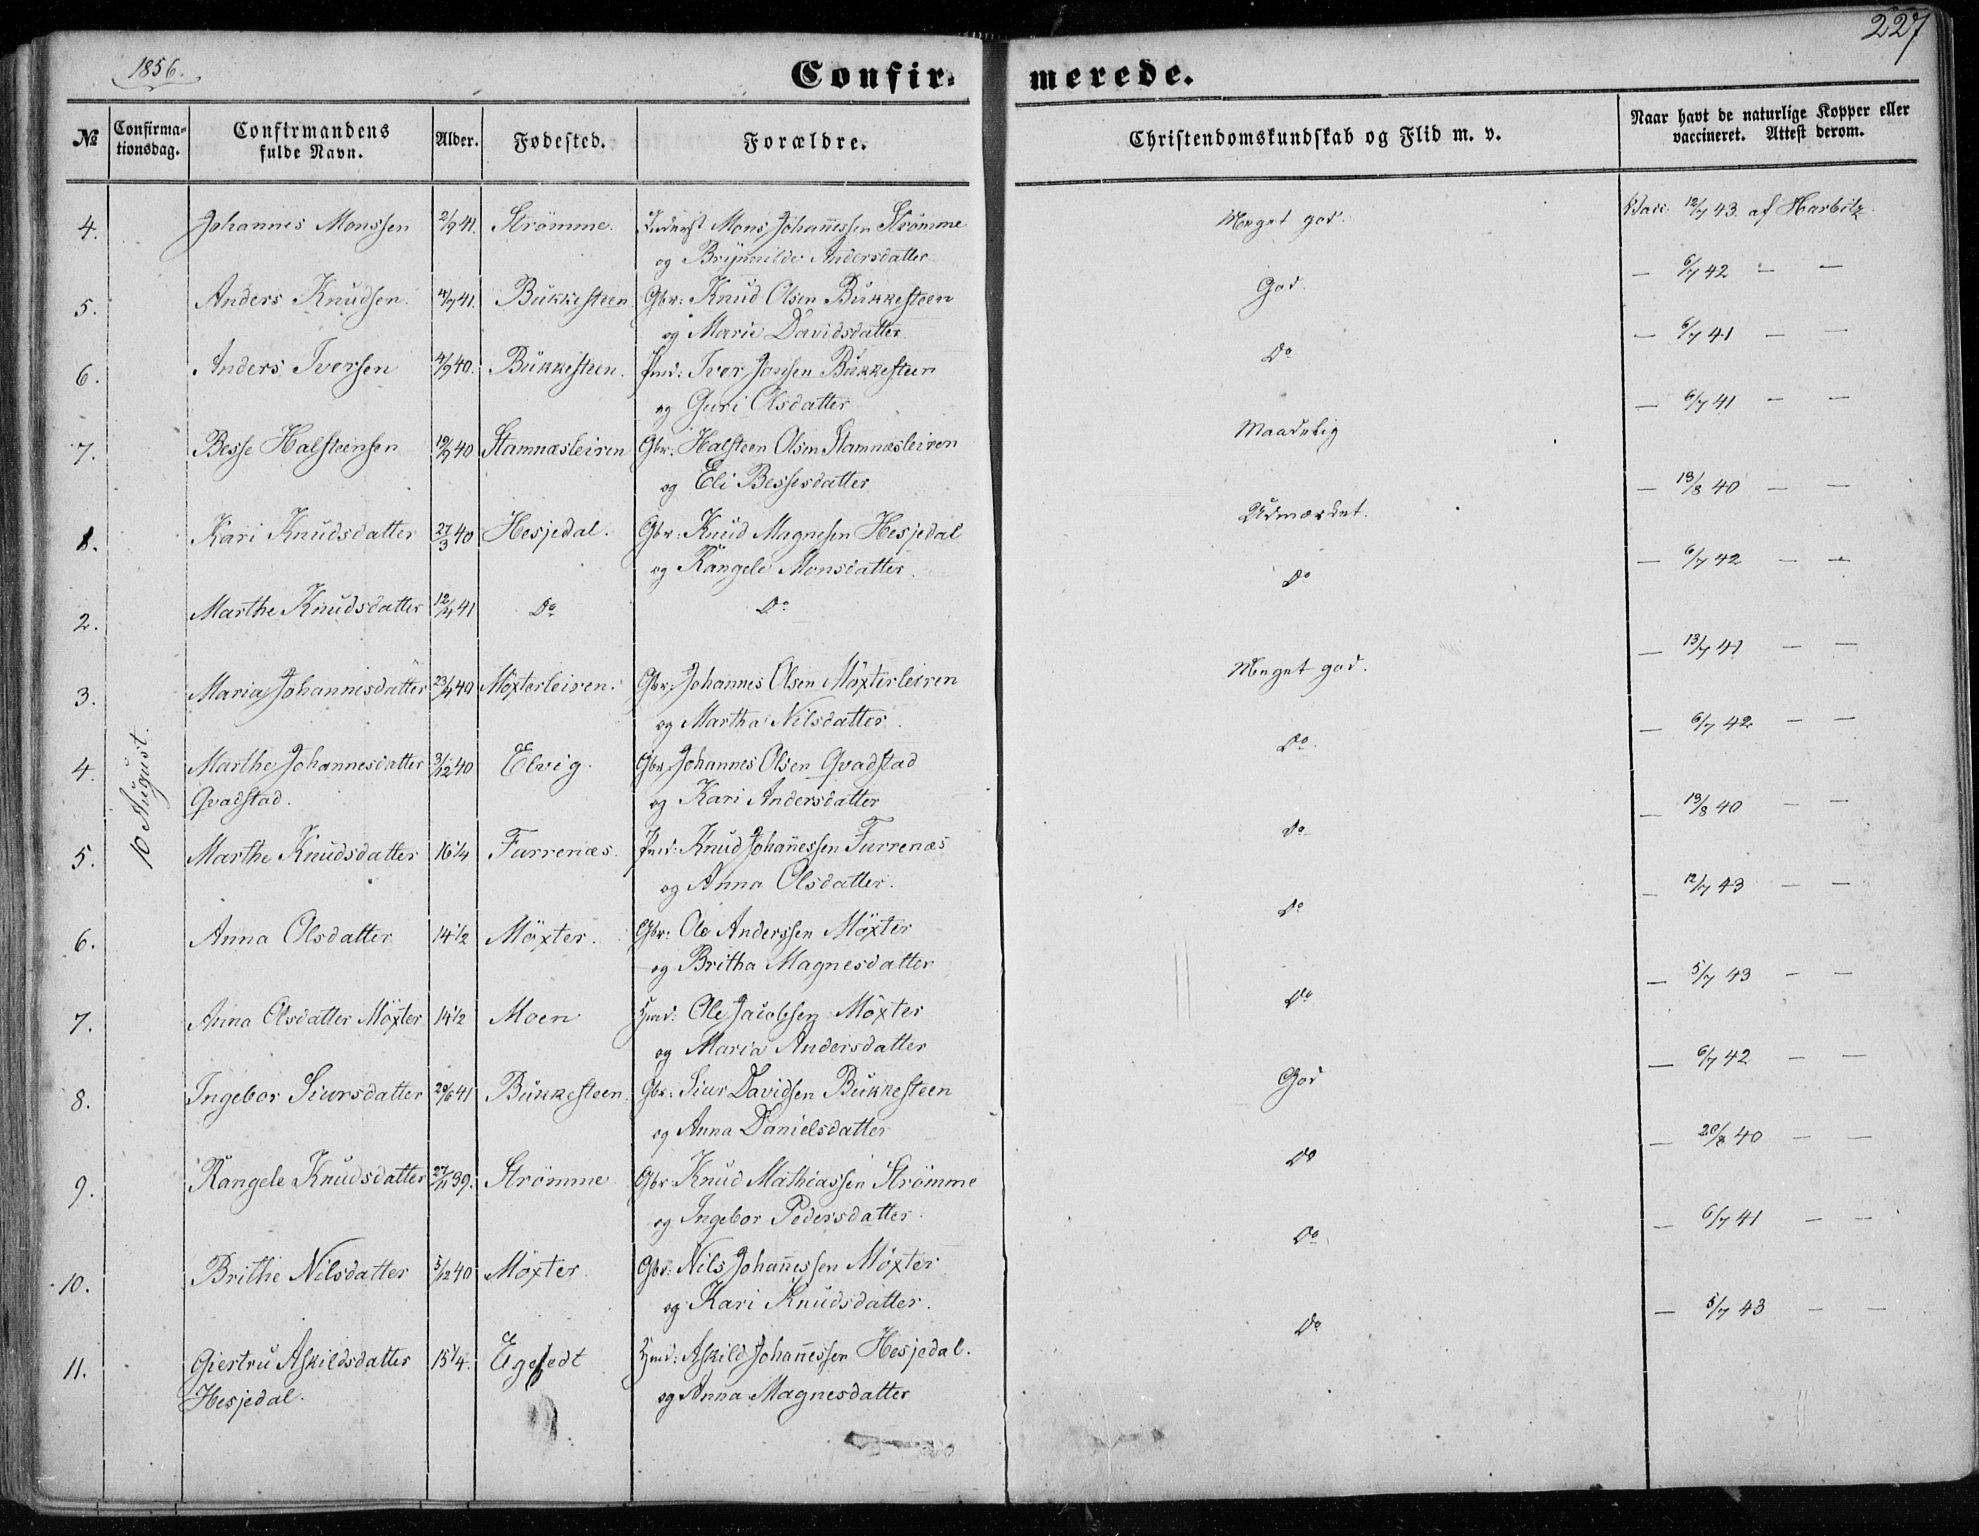 227
1856.
Confir- merede.
No Confirma-tionsdag. Confirmandens fulde Navn. Alder. Fødested. Forældre. Christendomskundskab og Flid m. v. Naar havt de naturlige Kopper eller vaccineret. Attest derom.
4. Johannes Monssen 2/9 41. Strømme. Inderst Mons Johannessen Strømme Meget god. Vacc. 12/7 43. af Harbitz
og Brynnilde Andersdatter
5. Anders Knudsen. 4/9 41. Bukkesteen Gbr: Knud Olsen Bukkesteen God. — 6/7 42 — —
og Marie Davidsdatter
6. Anders Iversen 4/9 40. Bukkesteen. Pmd: Iver Jonsen Bukkesteen Do — 6/7 41 — —
og Guri Olsdatter
7. Besse Halsteensen 19/9 40 Stamnæsleiren Gbr: Halsteen Olsen Stamnæsleiren Maadelig — 6/7 41 — —
og Eli Bessesdatter
1. Kari Knudsdatter 27/3 40 Hesjedal. Gbr: Knud Magnesen Hesjedal Udmærket. — 13/8 40 — —
og Rangele Monsdatter.
2. Marthe Knudsdatter 12/4 41 Do Do Do — 6/7 42 — —
3. Maria Johannesdatter 23/4 40 Møxterleiren. Gbr: Johannes Olsen Møxterleiren Meget god. — 13/7 41 — —
og Martha Nilsdatter.
10 August.
4. Marthe Johannesdatter 3/12 40 Elvig. Gbr: Johannes Olsen Qvadstad Do. — 6/7 42 — —
Qvadstad. og Kari Andersdatter
5. Marthe Knudsdatter 16 1/4 Furrenæs. Pmd: Knud Johannessen Furrenæs Do — 13/8 40 — —
og Anna Olsdatter.
6. Anna Olsdatter 14 1/2 Møxter. Gbr: Ole Anderssen Møxter Do — 12/7 43 — —
og Britha Magnesdatter
7. Anna Olsdatter Møxter 14 1/2 Moen Hmd: Ole Jacobsen Møxter Do — 5/7 43 — —
og Maria Andersdatter
8. Ingebor Siursdatter 29/6 41 Bukkesteen. Gbr: Siur Davidsen Bukkesteen God — 6/7 42 — —
og Anna Danielsdatter
9. Rangele Knudsdatter 27/11 39. Strømme Gbr: Knud Mathiassen Strømme Do — 20/8 40 — —
og Ingebor Pedersdatter.
10. Brithe Nilsdatter 5/12 40 Møxter. Gbr: Nils Johannessen Møxter Do. — 6/7 41 — —
og Kari Knudsdatter.
11. Giertru Askildsdatter 15 1/4. Egesedt Hmd: Askild Johannessen Hesjedal. Do — 5/7 43 — —
Hesjedal. og Anna Magnesdatter